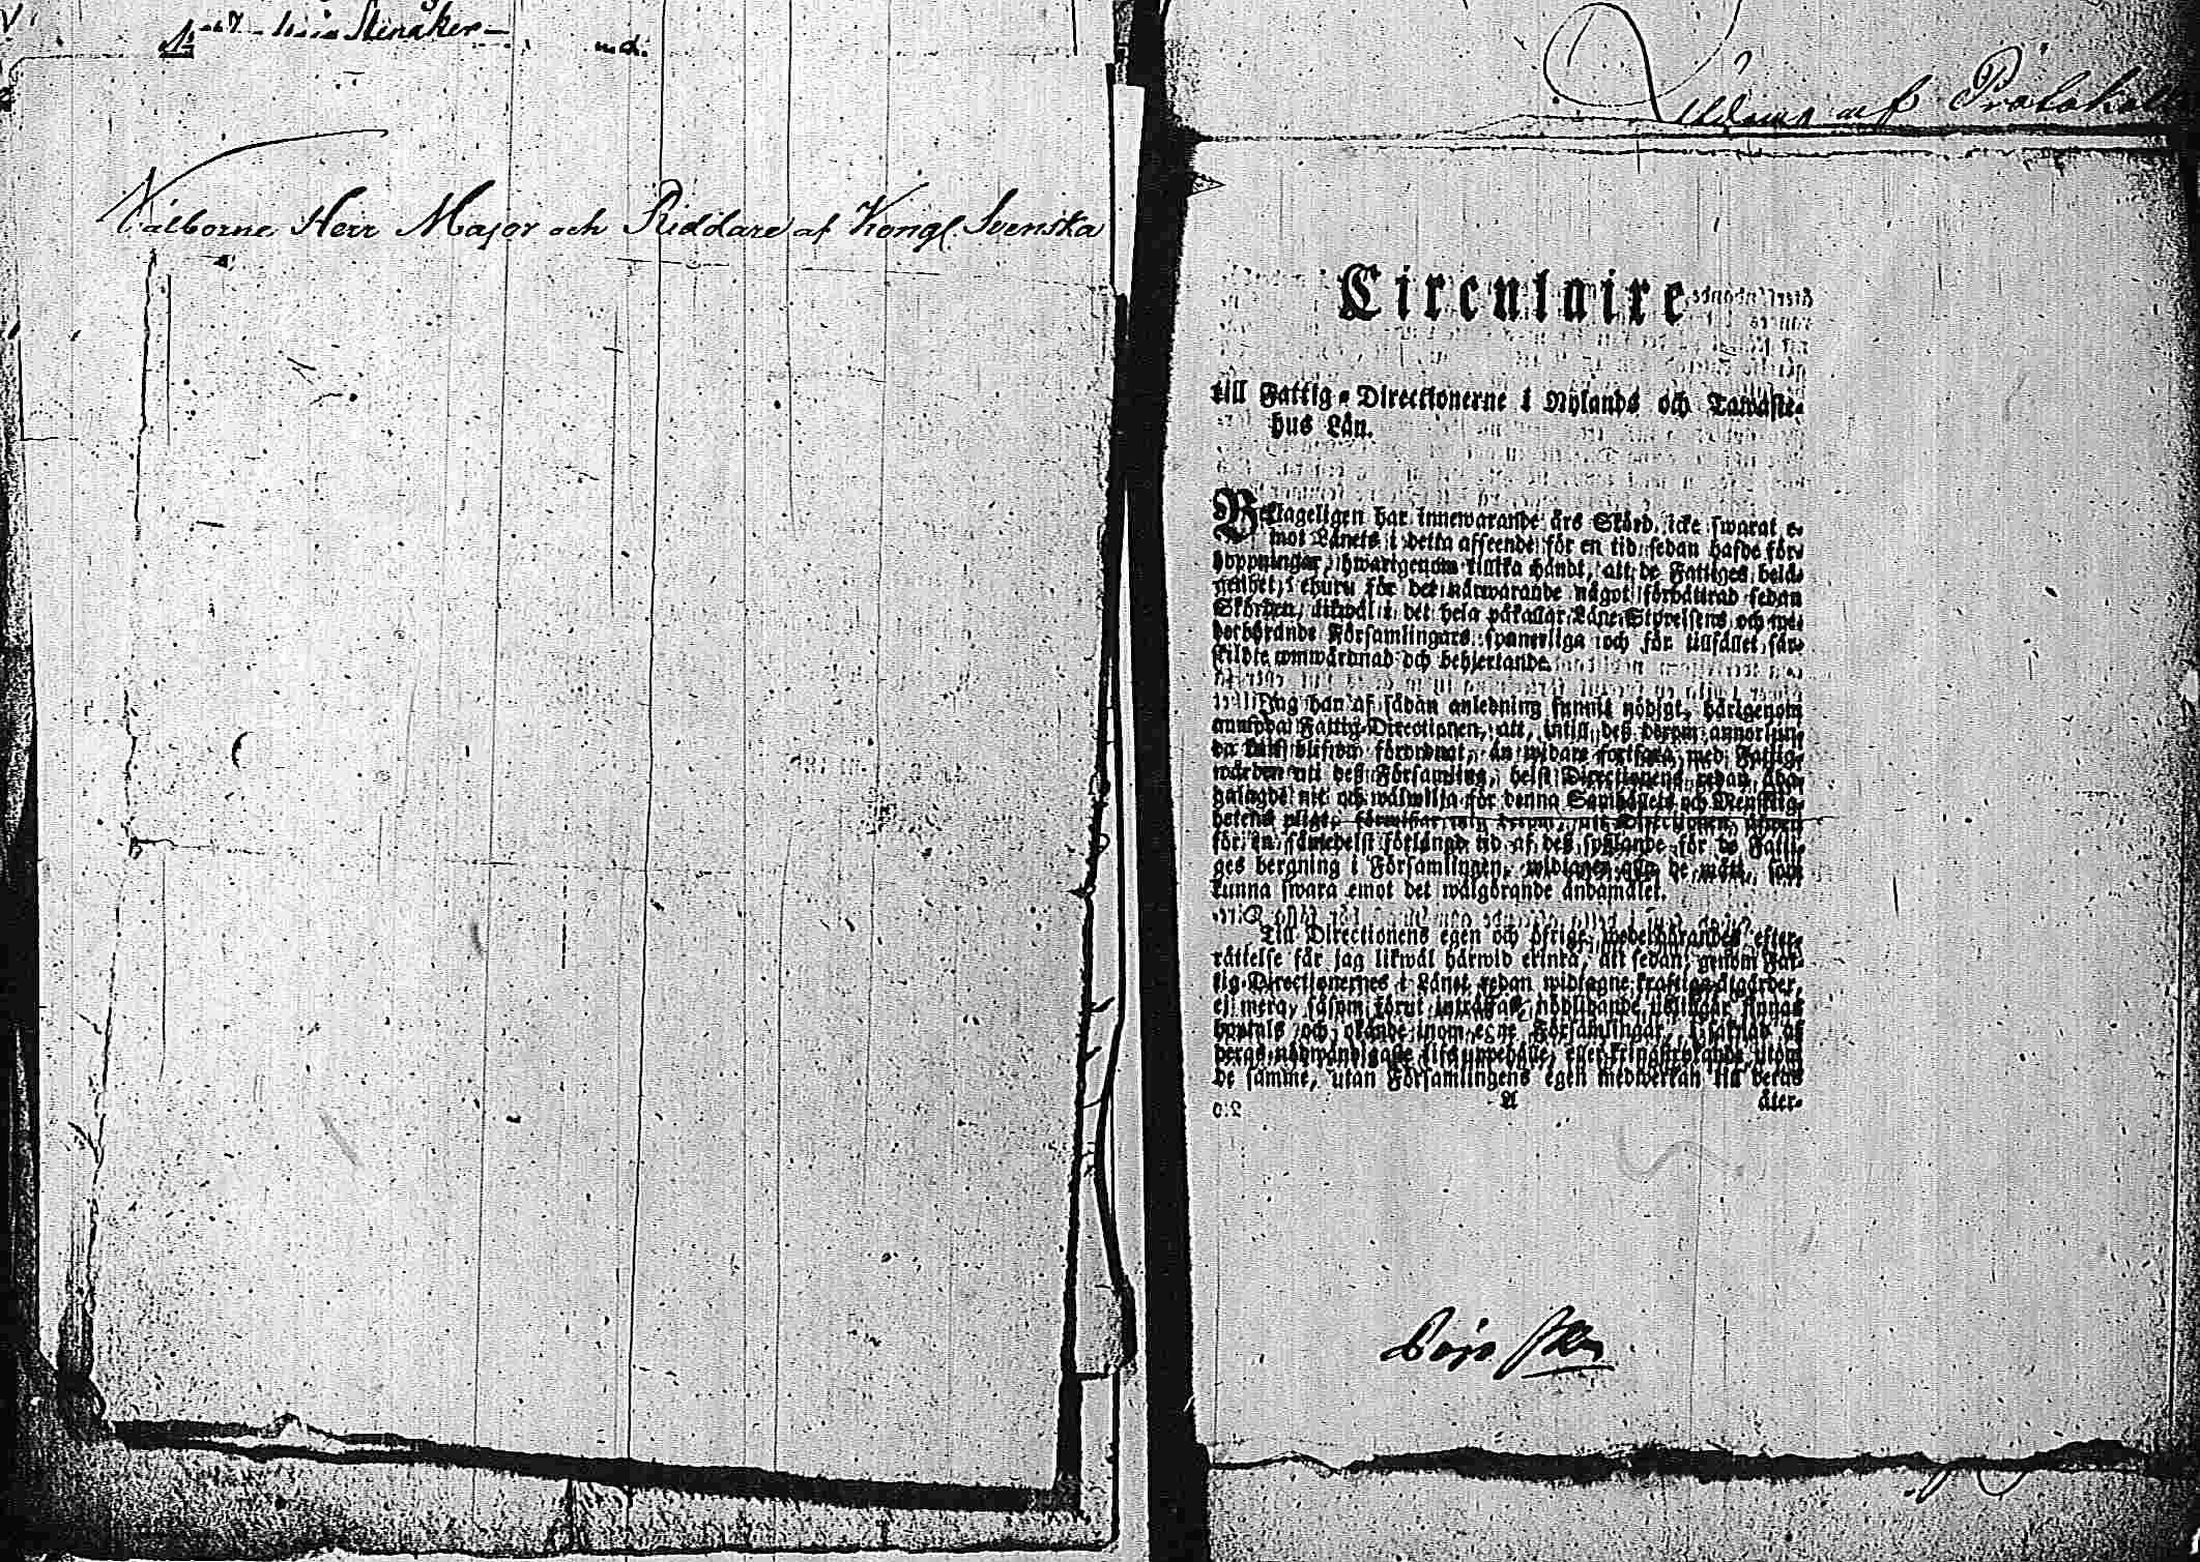 Stenåker
Välborne Herr Major och Riddare af Kongl. Svenska
af Protokoll
Circulaire
till Fattig-Directionerne i Nylands och Tawaste-
hus Län.
Beklageligen har innewarande års Skörd icke swarat e-
mot Länets i detta afseende för en tid sedan hafde för-
hoppningar, hwarigenom händt, att de Fattiges belä-
genhet, ehuru för det närwarande något förbättrad sedan
Skörden, likwäl i det hela påkallar Läne-Styrelsens och we-
derbörande Församlingars synnerliga och för tillfället sär-
skildte omwårdnad och behjertande.
Jag har af sådan anledning funnit nödigt, härigenom
anmoda Fattig-Directionen, att, intill deß derom annorlun-
da blifwer förordnat, än widare fortfara med Fattig-
wården uti deß Församling, helst Directionens redan åda-
galagde nit och wälwilja för denna Samhällets och Mensklig-
hetens pligt, Directionen, äfwen
för en förlängd tid af deß för de Fatti-
ges bergning i Församlingen, widtager de mått, som
kunna swara emot det wälgörande ändamålet.
Till Directionens egen och öfrige wederbörandes efter-
rättelse får jag likwäl härwid erinra, att sedan, genom Fat-
tig-Directionernes i Länet redan widtagne kraftiga åtgärder,
ej mera, såsom förut inträffat, nödlidande usslingar finnas
och okände inom egne Församlingar, i saknad af
deras nödwändigaste lifsuppehälle, eller kringstrykande utom
de samme, utan Församlingens egen medwerkan till deras
A åter-